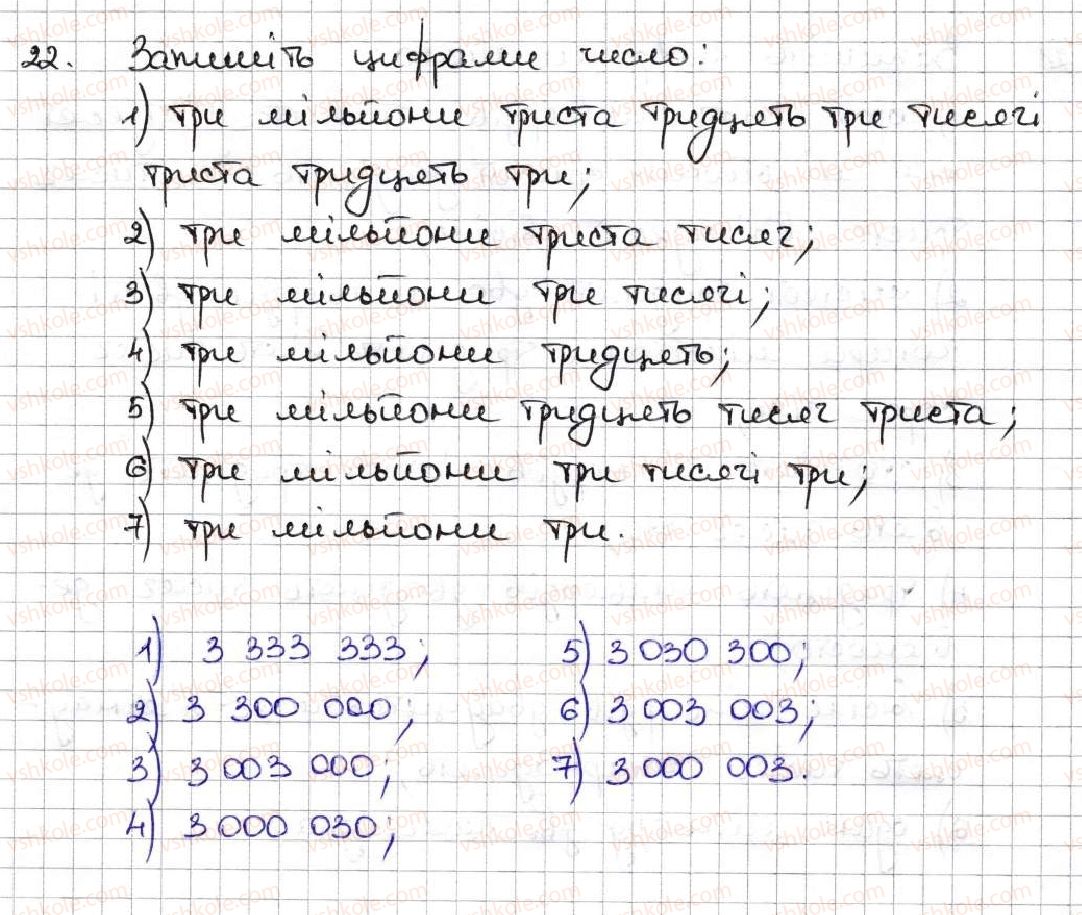 22. Запишіть цифрами число:
1) три мільйони триста тридцять три тисячі
триста тридцять три;
2) три мільйони триста тисяч;
3) три мільйони три тисячі;
4) три мільйони тридцять;
5) три мільйони тридцять тисяч триста;
6) три мільйони три тисячі три;
7) три мільйони три.
1) 3 333 333;
2) 3 300 000;
3) 3 003 000;
4) 3 000 030;
5) 3 030 300;
6) 3 003 003;
7) 3 000 003.